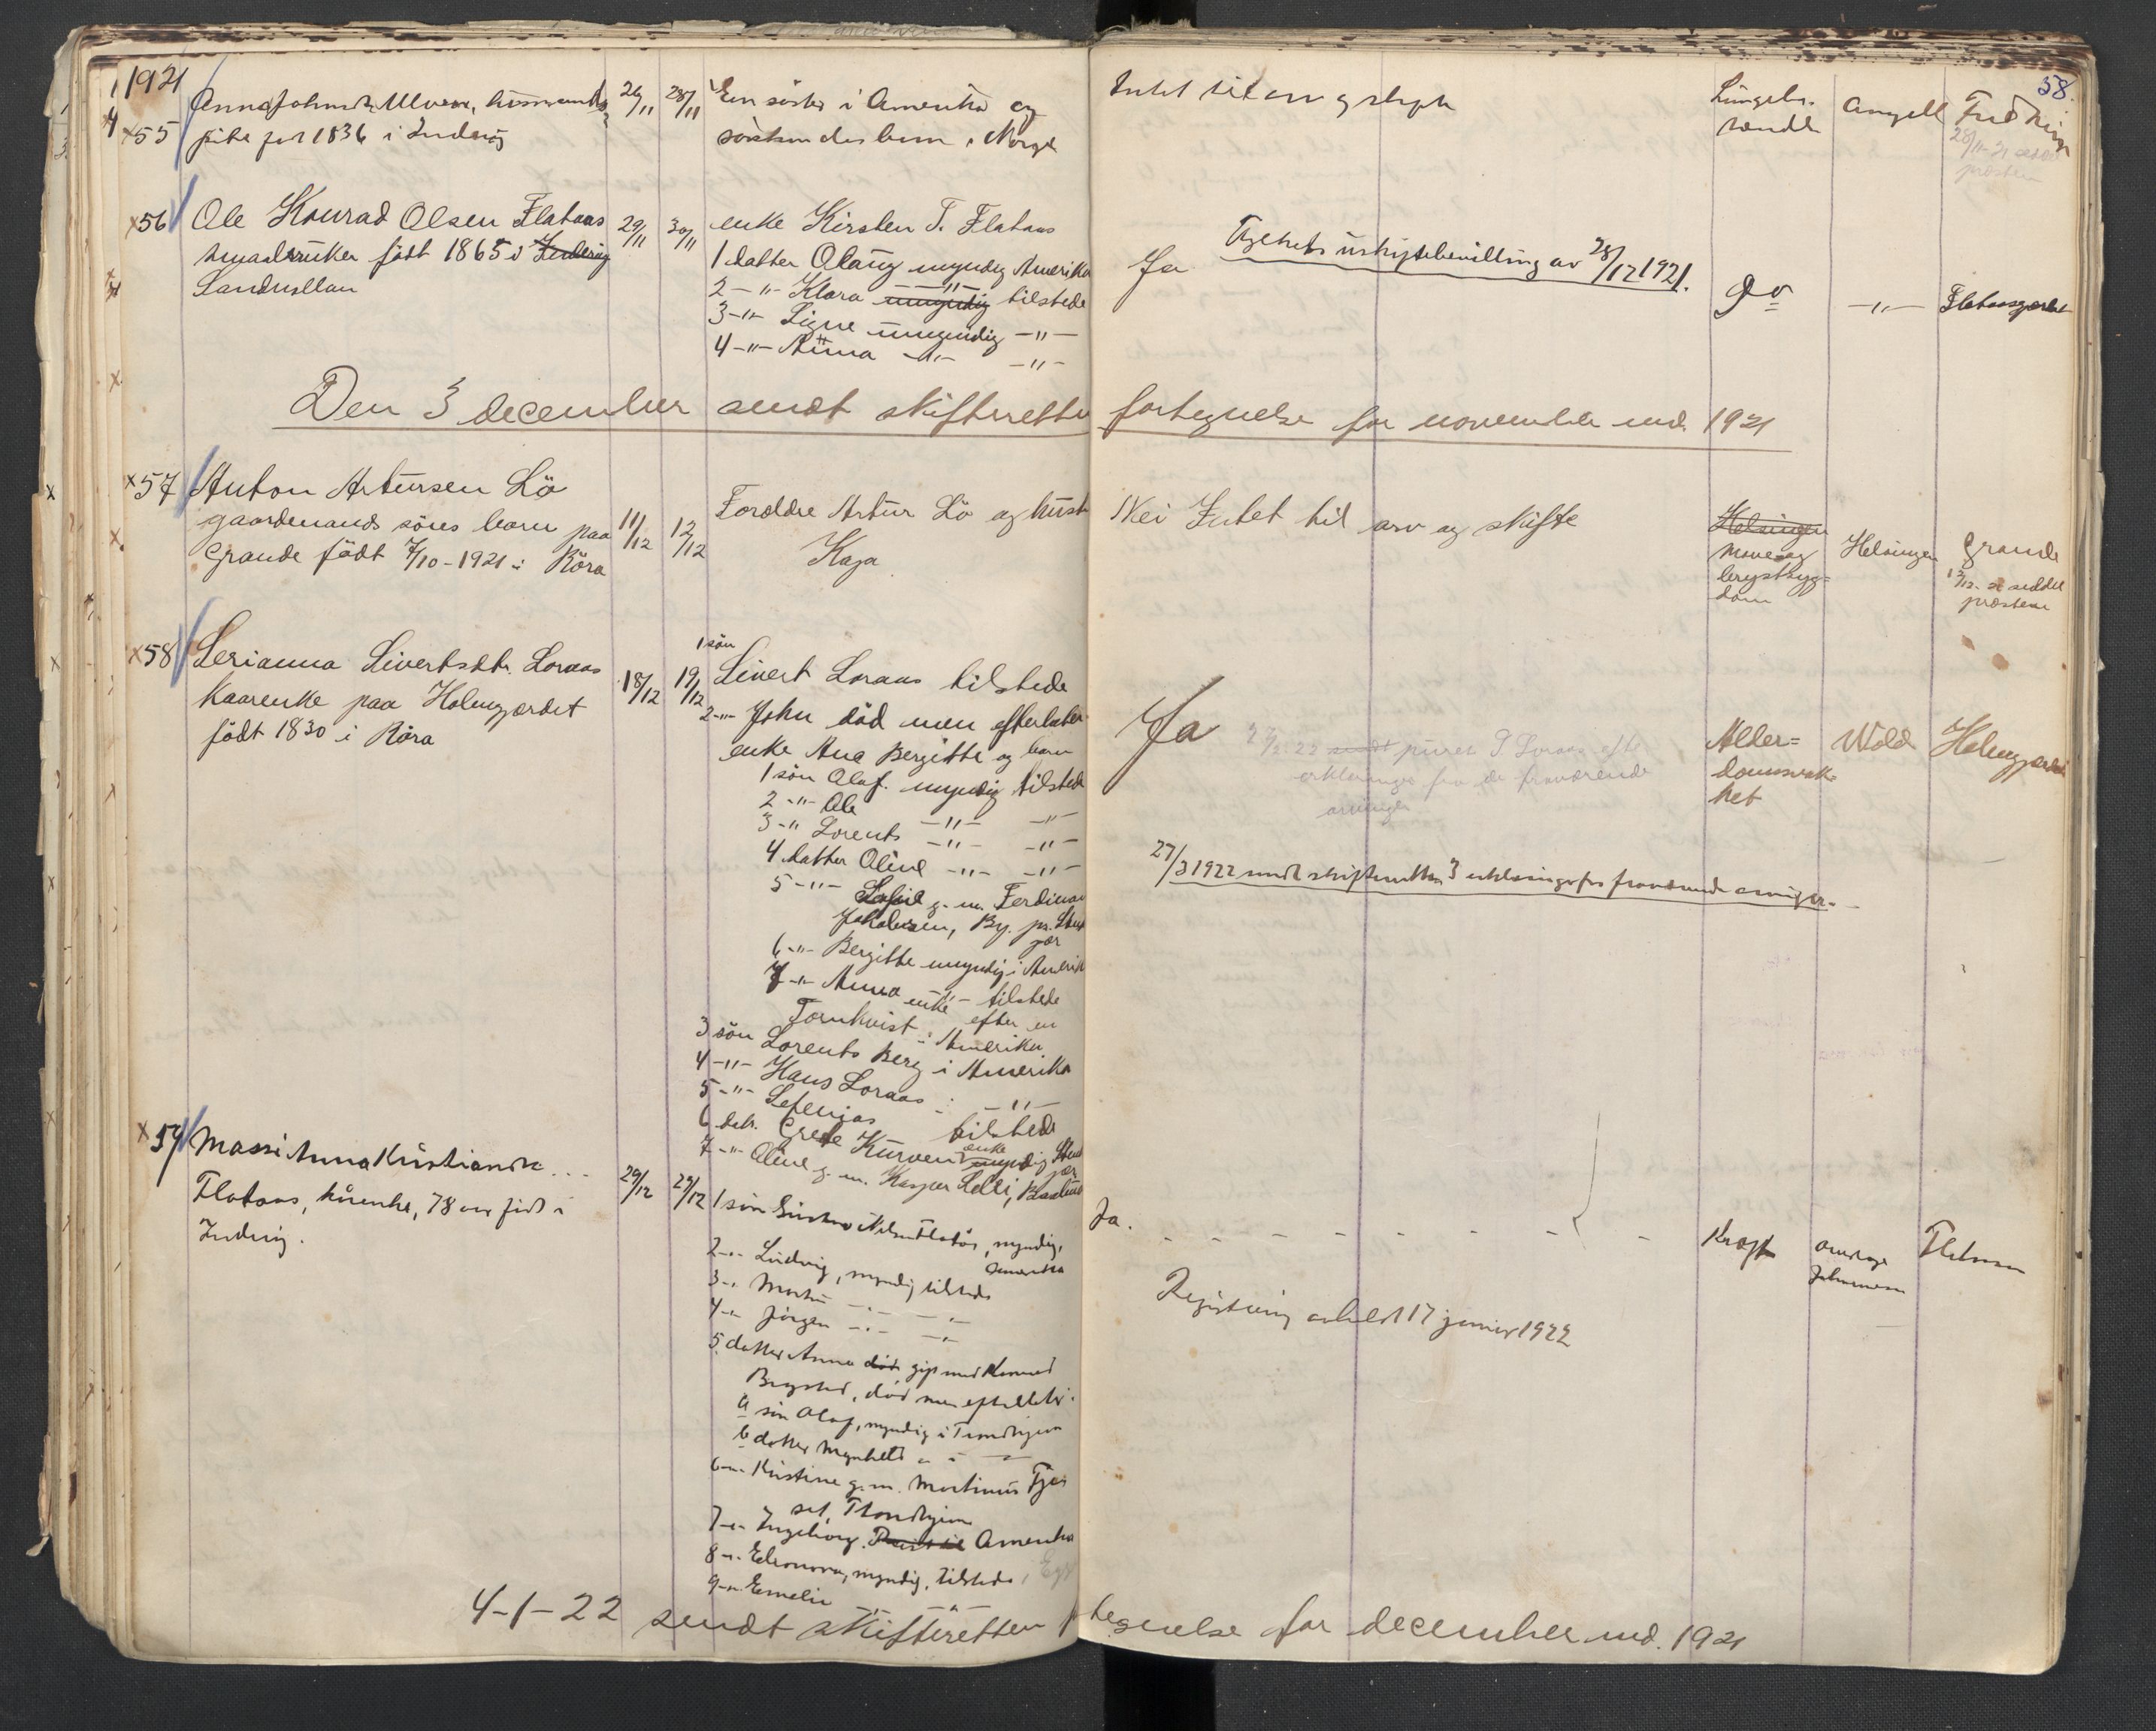 1921
58.
55 Anna Johnsdtr. Ulven, husmands
pike født 1836 i Inderøy
26/11 28/11
En søster i Amerika og
søskendes barn i Norge
Intet til arv og skifte
Lungebe-
tændelse
Angell
28/11-21 seddel
presten
56 Ole Konrad Olsen Flataas
smaabruker födt 1865 i Inderøy
Sandvollan
29/11 30/11
enke Kirsten T. Flataas
1 datter Olaug myndig Amerika
2 -"- Klara umyndig tilstede
3 -"- Signe umyndig -"-
4 -"- Anna -"- -"-
Ja
Uskiftebevilling av 28/12 1921.
do
-"-
Flataasgjerdet
Den 3 december sendt skifteretten fortegnelse for november md. 1921
57 Anton Artursen Lö
gaardmands söns barn paa
Grande födt 7/10-1921 i Röra
11/12 12/12
Forældre Artur Lö og hust
Kaja
Nei Intet til arv og skifte
Helsingen
Mave og
brystsyg-
dom
Helsingen
Grande
12/12-21 seddel
presten
58 Serianna Sivertsdtr. Loraas
Kaarenke paa Holmgjerdet
födt 1830 i Röra
18/12 19/12
1 sön
Sivert Loraas tilstede
2 -"- John död men efterlater
enke Ana Bergitte og barn
1 sön Olaf. myndig tilstede
2 -"- Ole -"- -"-
3 -"- Lorents -"- -"-
4 datter Oline -"- -"-
5 -"- g. m. Ferdinan
Jakobsen, By. pr. Stenk
jær
6 -"- Bergitte myndig i Amerik
7 -"- Anna -"- tilstede
enke efter en
Tornkvist i Amerika
3 sön Lorents Berg i Amerika
4 -"- Hans Loraas i -"-
5 -"- Sefenias tilstede
6 dat. Grete Kurven enke myndig Stenk
jær
7 -"- Oline g. m. Kasper Selli,
Ja
27/2 22 sendt S Loraas efter
erklæringer fra de fraværende
arvinger
27/3 1922 sendt skifteretten 3 erklæringer fra fraværende arvinger.
Alder-
domssvak-
het
Wold
Holmgjerdet
59 Massi Anna Kristiansdtr.
Flataas, kårenke, 78 aar født i
Inderøy.
29/12 29/12
1 søn Gustav Nilsen Flatås, myndig,
Amerika
2 -"- Ludvig, myndig tilstede
3 -"- Martin -"- -"-
4 -"- Jörgen -"- -"-
5 datter Anna død gift med Konrad
død men efterlater:
a søn Olaf, myndig i Trondhjem
b datter Magnhild
6 -"- Kristine g. m. Martinus Fjæs
set, Trondhjem
7 -"- Ingeborg. Amerika
8 -"- Eleonora, myndig, tilstede,
9 -"- Emelie -"- -"-
Ja.
Registrering avholdt 17 januar 1922
Kræft
Johannessen
Flataas
4-1-22 sendt skifteretten fortegnelse for december md. 1921